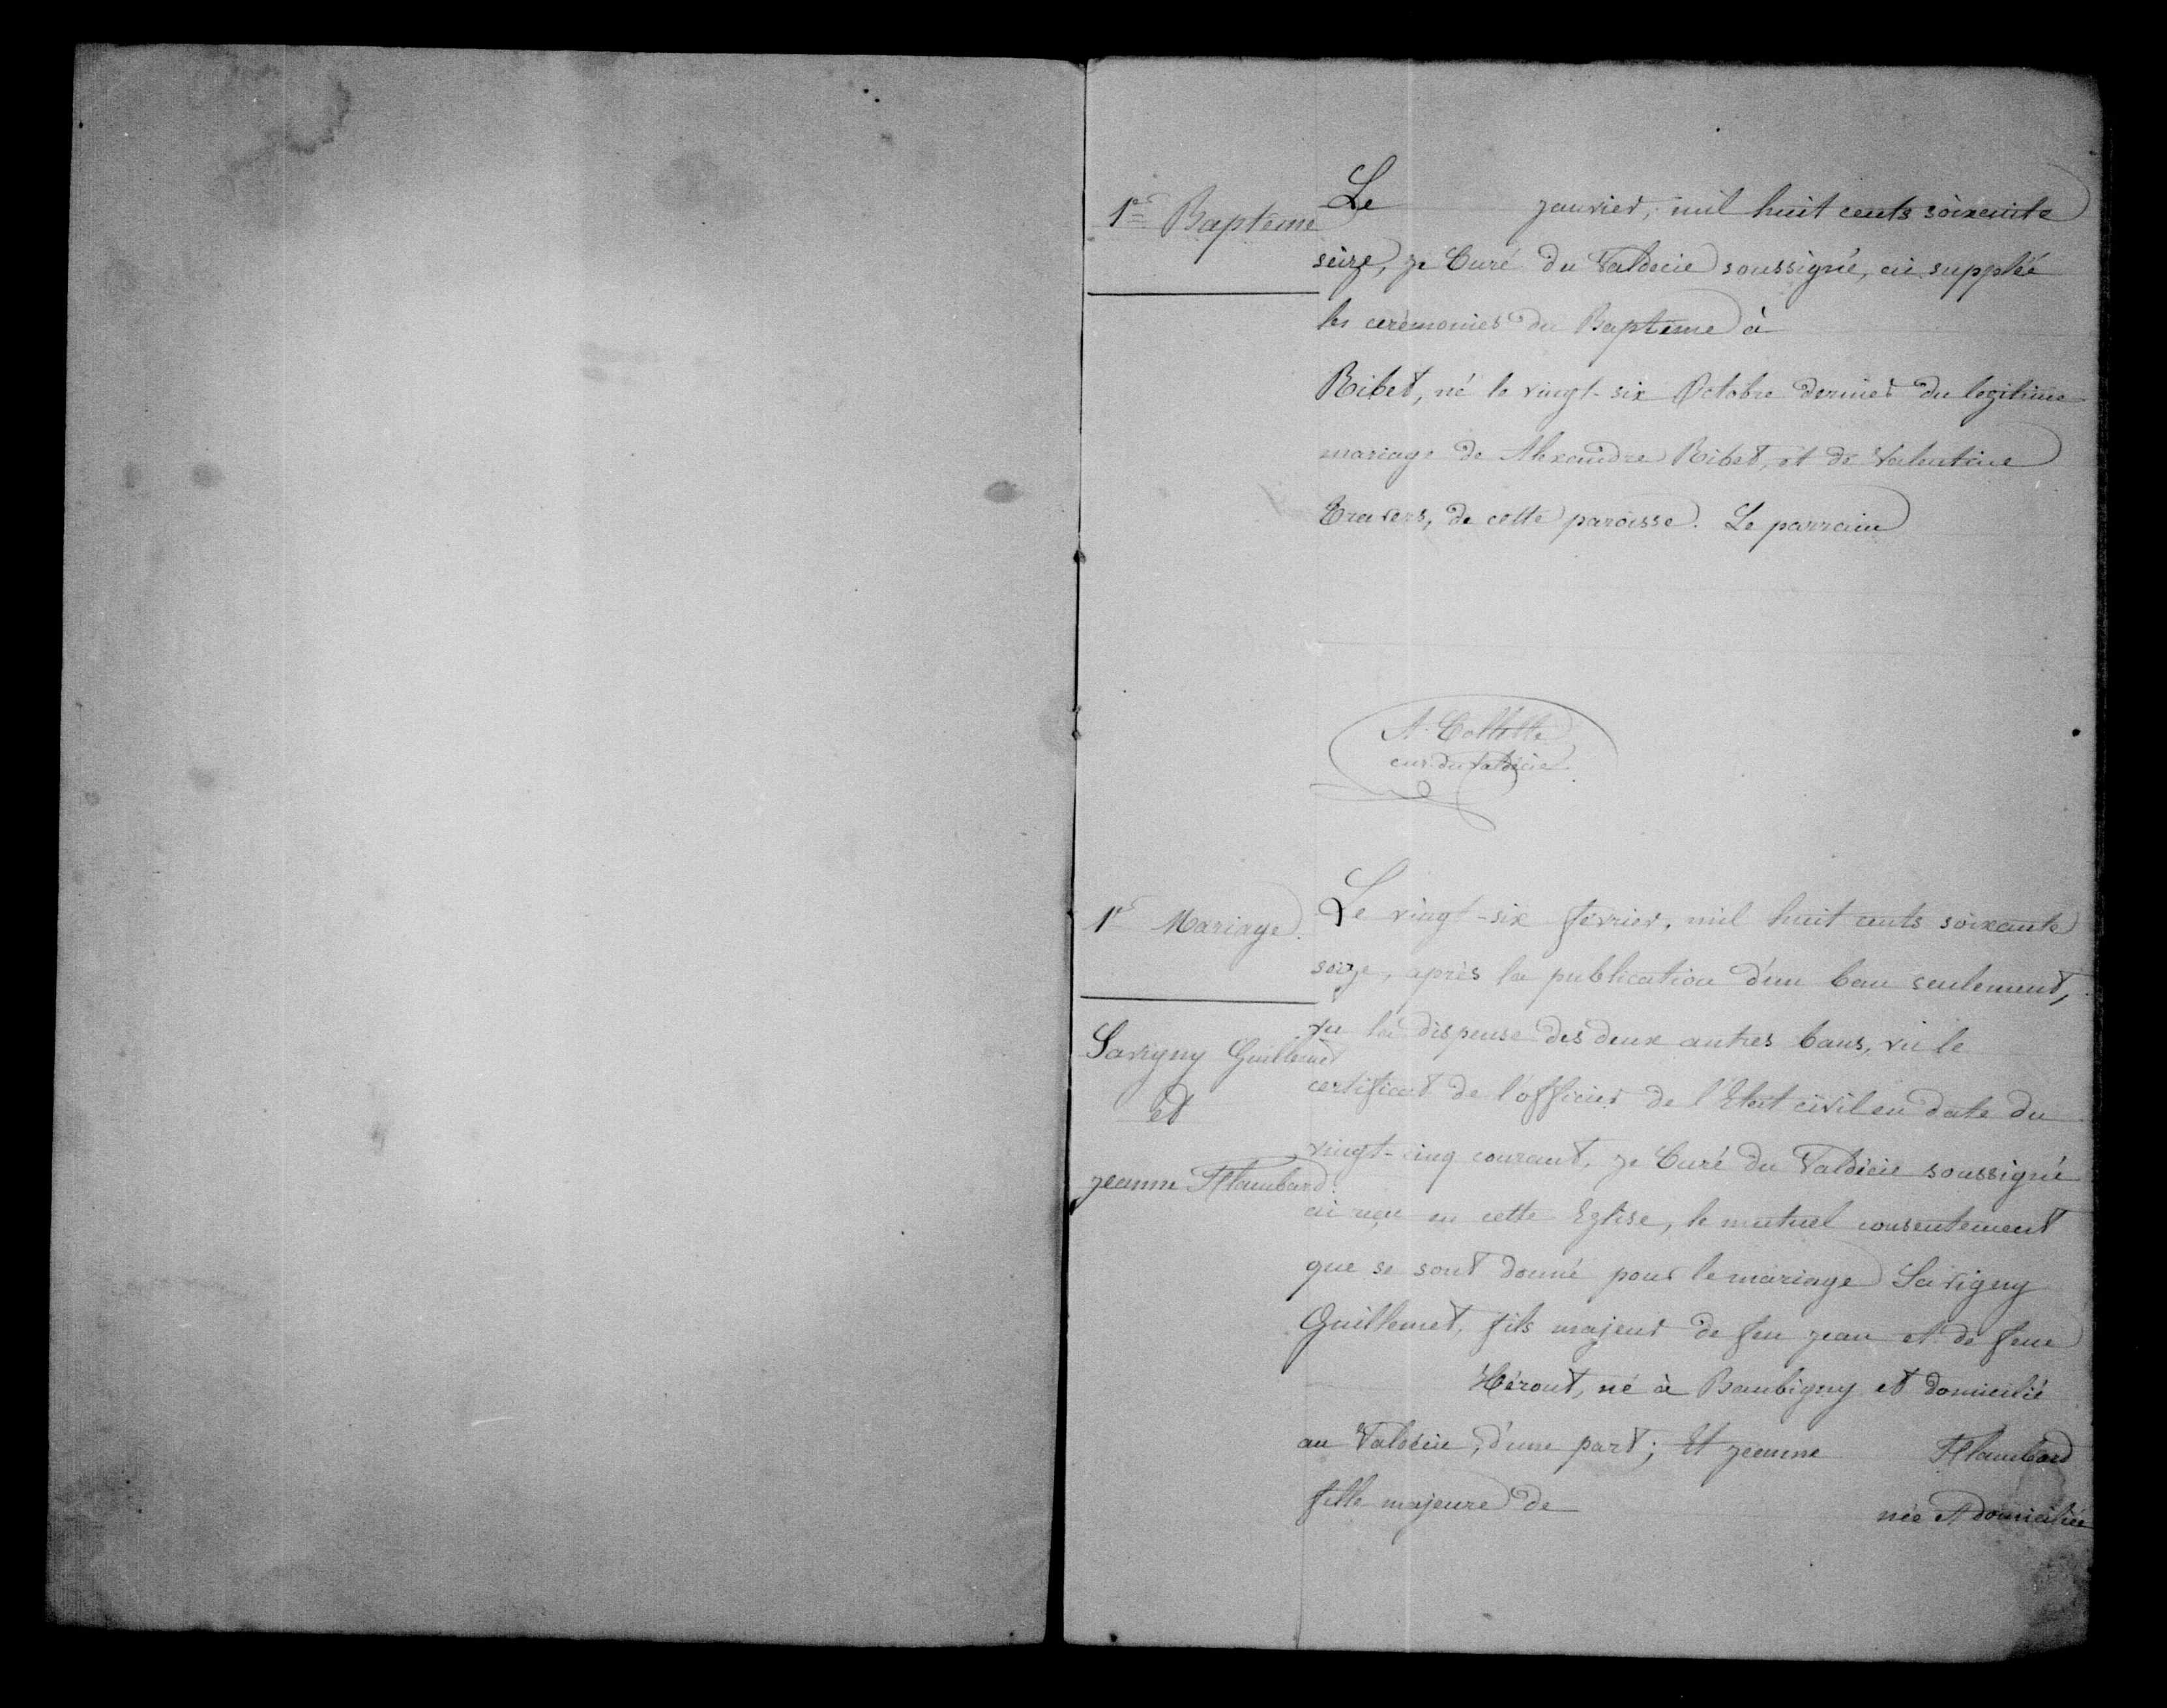 1er Baptême
Le janvier, mil huit cents soixante
seize, je Curé du Valdécie soussigné, ai suppléé
les cérèmonies du Baptême à
Ribet, né le vingt-six Octobre dernier du legitime
mariage de Alexandre Ribet, et de Valentine
Travers, de cette paroisse. Le parrain
A. Collette
curé du Valdécie.
1er Mariage.
Savigny Guillemet
et
jeanne Flambard.
Le vingt-six février, mil huit cents soixante
seize, après la publication d'un ban seulement,
vu la dispense des deux autres bans, vu le
certificat de l'officier de l'Etat civil en date du
vingt-cinq courant, je Curé du Valdécie soussigné
ai reçu en cette Eglise, le mutuel consentement
que se sont donné pour le mariage Savigny
Guillemet, fils majeur de feu jean et de feue
Hérout, né à Baubigny et domicilié
au Valdécie, d'une part; Et jeanne Flambard
fille majeure de née et domiciliée